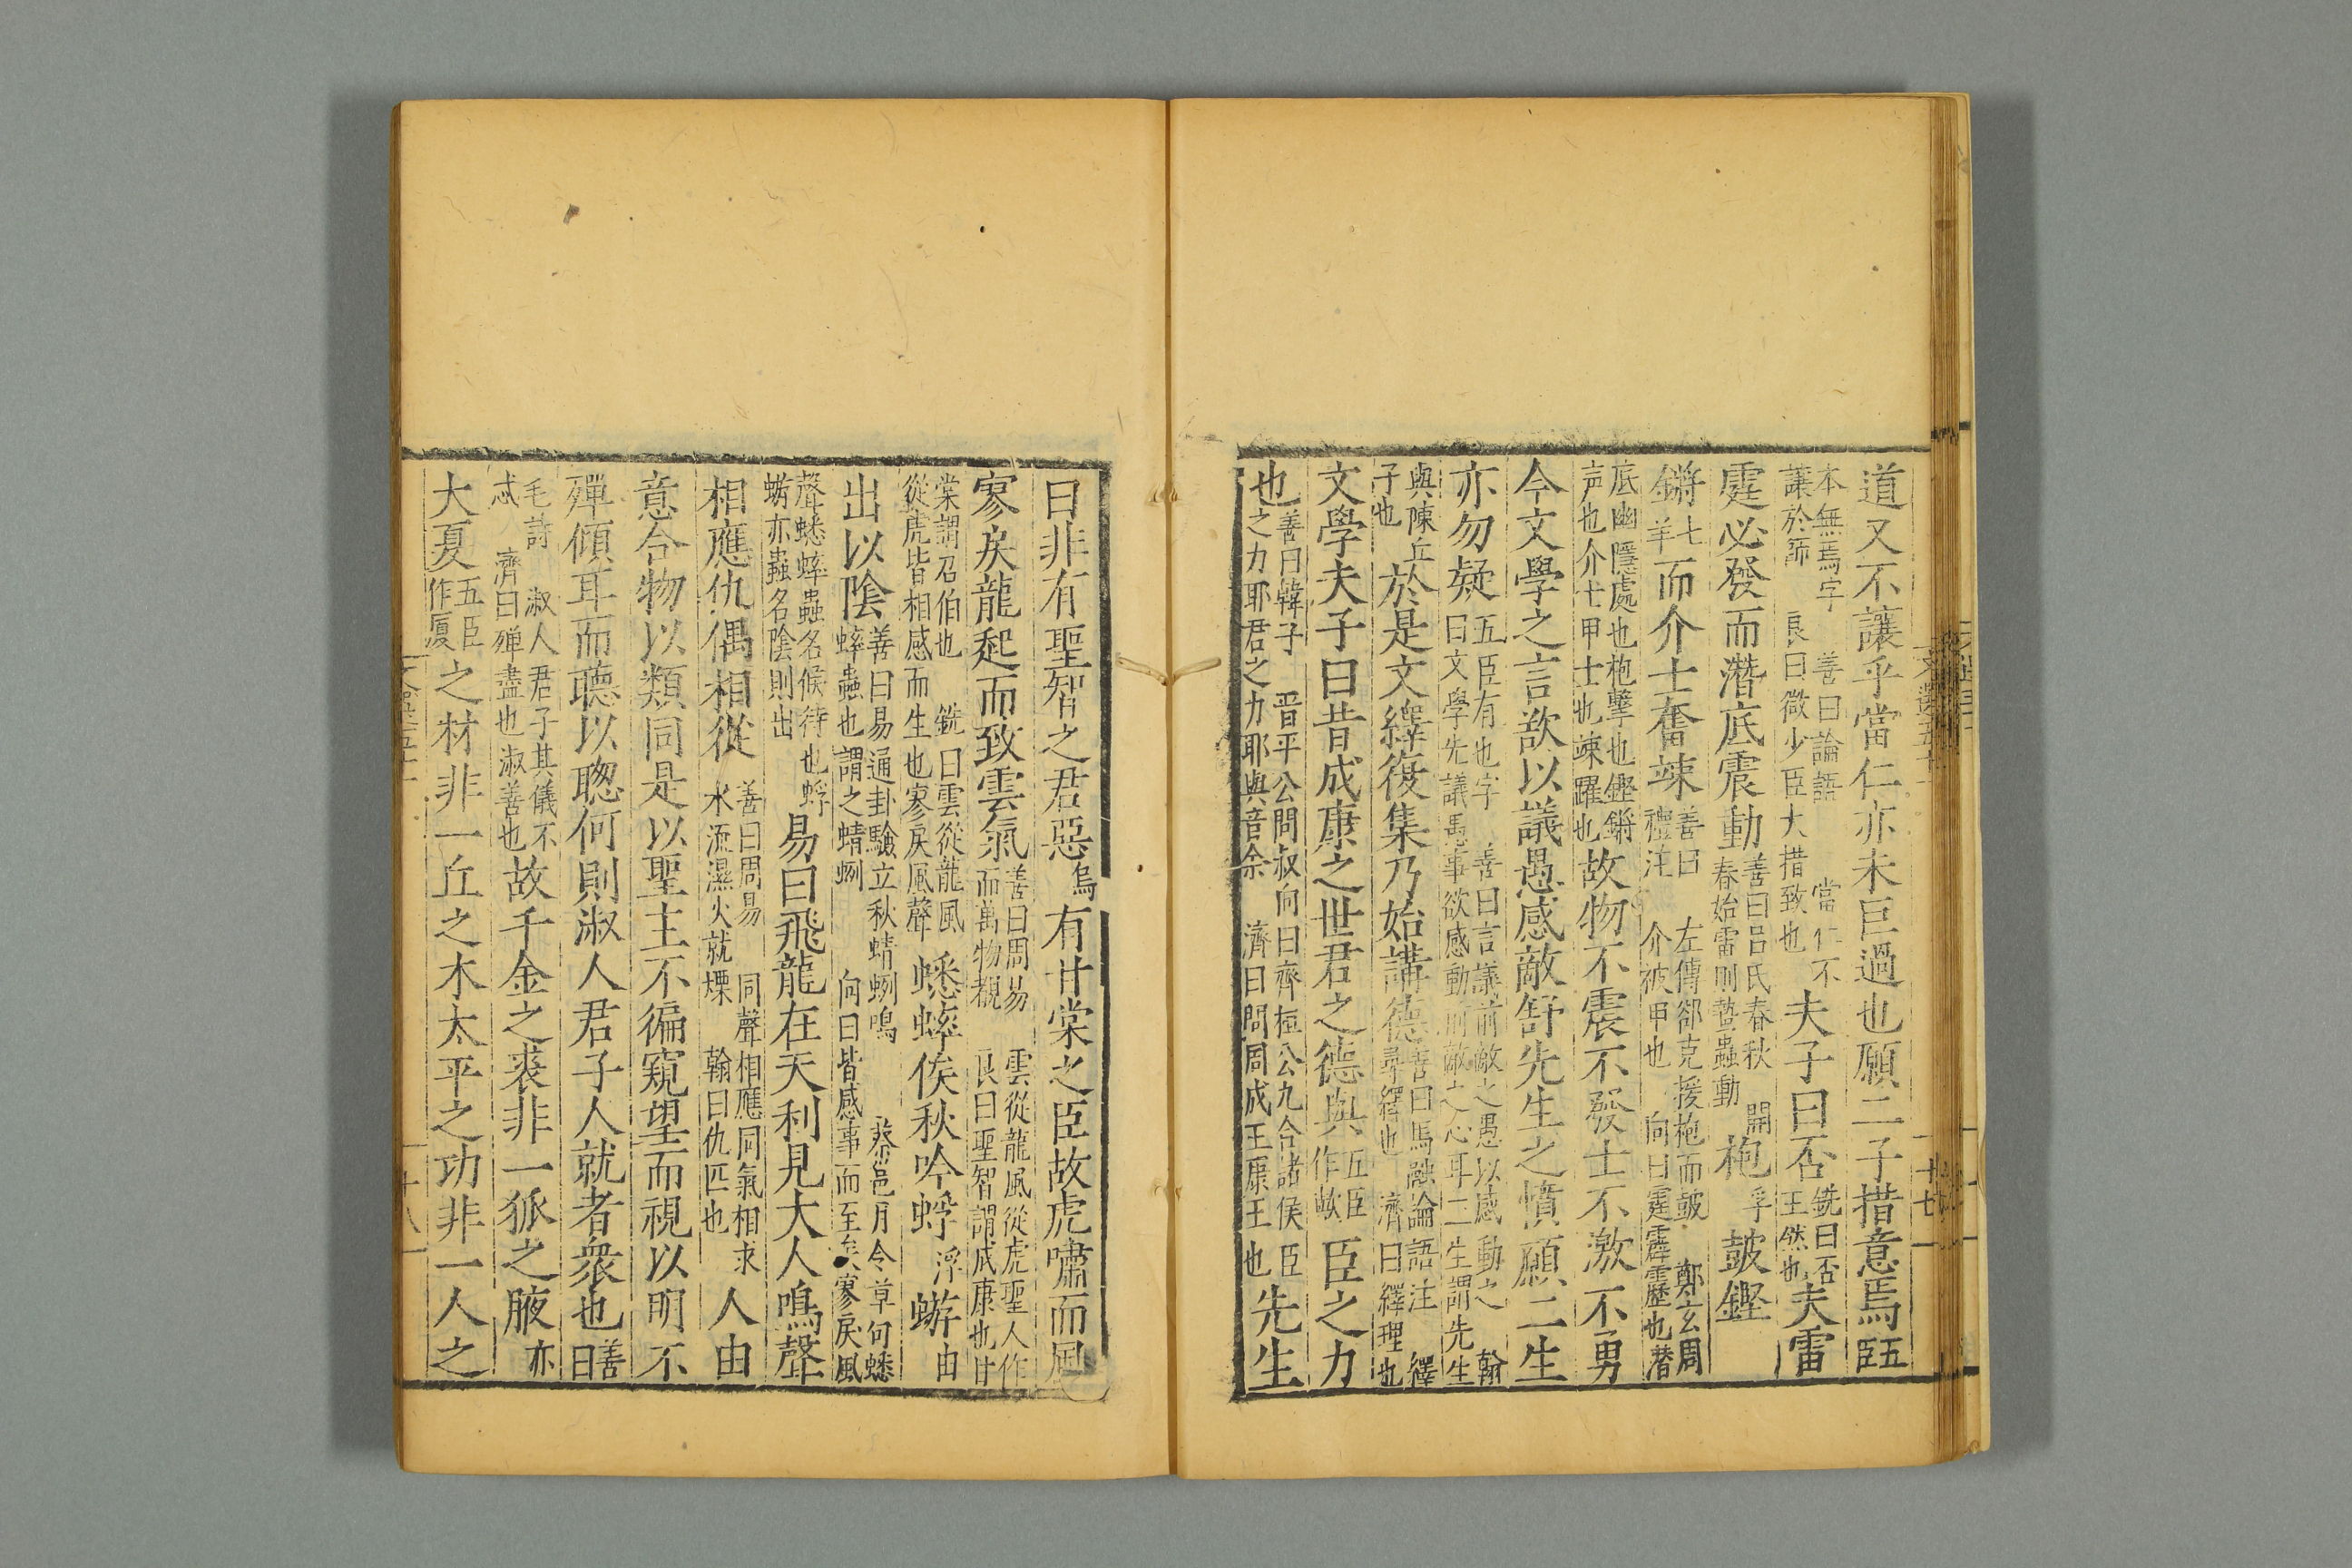 道又不讓乎當仁亦未巨過也願二子措意焉五臣
本無焉字 善曰論語 當仁不
讓於師 良曰微少臣大措致也
夫子曰否銑曰否王然也夫雷
霆必發而潛底震動善曰呂氏春秋 開春始雷則蟄蟲動
枹孚鼓鏗
鏘七羊而介士奮竦善曰 左傳郤克援枹而鼓 鄭玄周禮注 介被甲也 向曰霆霹靂也潛
底幽隱處也枹擊也鏗鏘声也介士甲士也竦躍也
故物不震不發士不激不勇
今文學之言欲以議愚感敵舒先生之憤願二生
亦勿疑五臣有也字 善曰言議前敵之愚以感動之 翰曰文學先議愚事欲感動前敵之心耳二生謂先生
與陳丘子也
於是文繹復集乃始講德善曰馬融論語注 繹尋繹也 濟曰繹理也
文學夫子曰昔成康之世君之德與五臣作歟臣之力
也善曰韓子 晋平公問叔向曰齊桓公九合諸侯 臣之力耶君之力耶與音余 濟曰問周成王康王也
先生
曰非有聖智之君惡烏有甘棠之臣故虎嘯而風
寥戾龍起而致雲氣善曰周易 雲從龍風從虎聖人作而萬物覩 良曰聖智謂成康也甘
棠謂召伯也 銑曰雲從龍風從虎皆相感而生也寥戾風聲
蟋蟀俟秋吟蜉浮蝣由
出以陰善曰易通卦驗立秋蜻蛚鳴 蔡邕月令章句蟋蟀蟲也謂之蜻蛚 向曰皆感事而至矣寥戾風
聲蟋蟀蟲名候待也蜉蝣亦蟲名陰則出
易曰飛龍在天利見大人鳴聲
相應仇偶相從善曰周易 同聲相應同氣相求水流濕火就燥 翰曰仇匹也
人由
意合物以類同是以聖主不徧窺望而視以明不
殫傾耳而聽以聰何則淑人君子人就者衆也善曰
毛詩 淑人君子其儀不忒 濟曰殫盡也淑善也
故千金之裘非一狐之腋亦
大夏五臣作厦之材非一丘之木太平之功非一人之